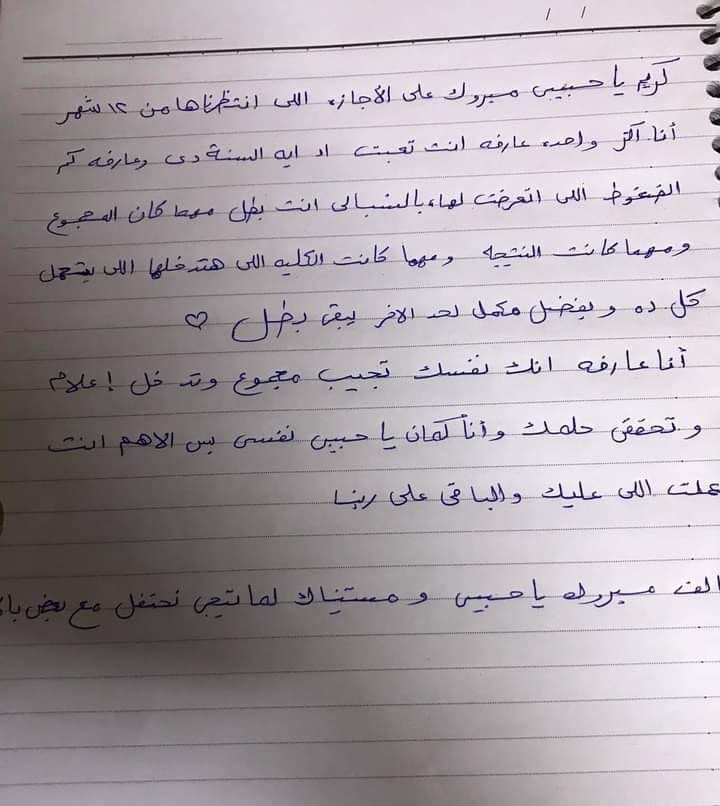 / /
كريم يا حبيبى مبروك على الأجازه اللى انتظرناها من ١٢ شهر
أنا أكتر واحده عارفه انت تعبت اد ايه السنة دى وعارفه كم
الضغوط اللى اتعرضت لها، بالنسبالى انت بطل مهما كان المجموع
ومهما كانت النتيجه ومهما كانت الكليه اللى هتدخلها اللى يتحمل
كل ده ويفضل مكمل لحد الاخر يبقى بطل ♡
أنا عارفه انك نفسك تجيب مجموع وتدخل إعلام
وتحقق حلمك وأنا كمان يا حبيبى نفسى بس الاهم انت
عملت اللى عليك والباقى على ربنا
الف مبروك يا حبيبى ومستنياك لما تيجى نحتفل مع بعض